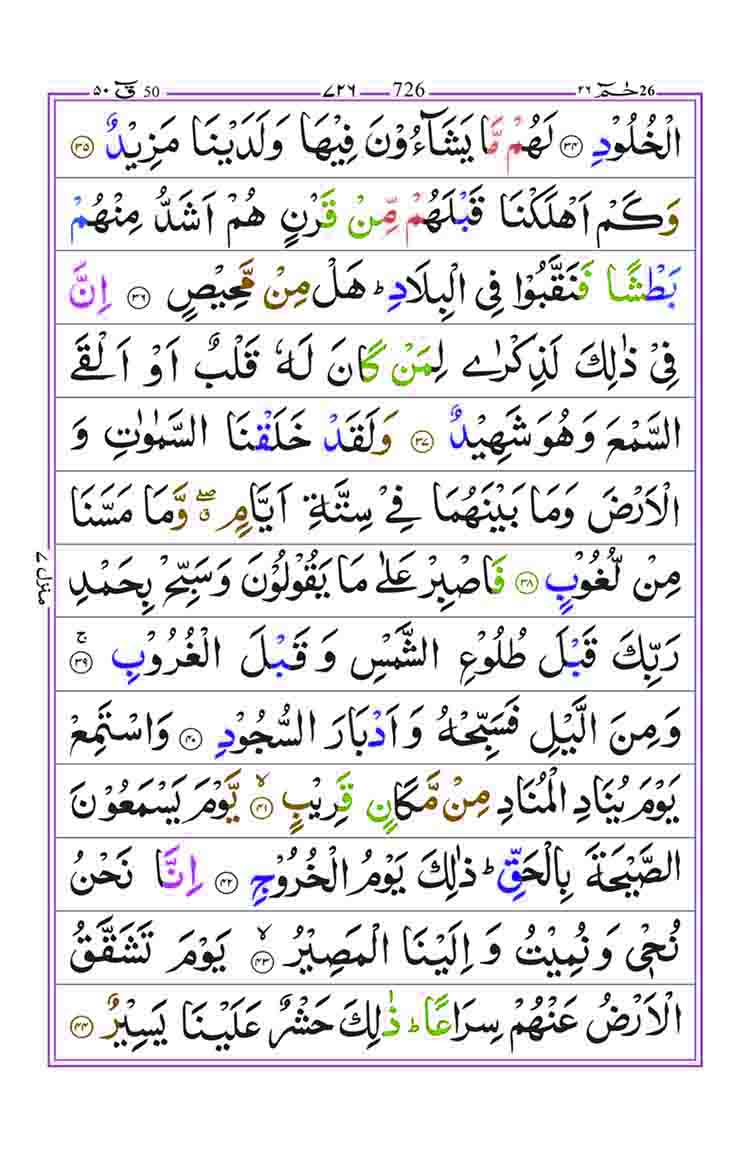 26 حٰمٓ ٢٦ 726 ٧٢٦ 50 قٓ ٥٠
الْخُلُوْدِ ﴿٣٤﴾ لَهُمْ مَّا يَشَآءُوْنَ فِيْهَا وَلَدَيْنَا مَزِيْدٌ ﴿٣٥﴾
وَكَمْ اَهْلَكْنَا قَبْلَهُمْ مِّنْ قَرْنٍ هُمْ اَشَدُّ مِنْهُمْ
بَطْشًا فَنَقَّبُوْا فِی الْبِلَادِ ؕ هَلْ مِنْ مَّحِيْصٍ ﴿٣٦﴾ اِنَّ
فِیْ ذٰلِكَ لَذِكْرٰی لِمَنْ كَانَ لَهٗ قَلْبٌ اَوْ اَلْقَی
السَّمْعَ وَهُوَ شَهِيْدٌ ﴿٣٧﴾ وَلَقَدْ خَلَقْنَا السَّمٰوٰتِ وَ
الْاَرْضَ وَمَا بَيْنَهُمَا فِیْ سِتَّةِ اَيَّامٍ ۖۗ وَّمَا مَسَّنَا
مِنْ لُّغُوْبٍ ﴿٣٨﴾ فَاصْبِرْ عَلٰی مَا يَقُوْلُوْنَ وَسَبِّحْ بِحَمْدِ
رَبِّكَ قَبْلَ طُلُوْعِ الشَّمْسِ وَقَبْلَ الْغُرُوْبِ ۚ﴿٣٩﴾
وَمِنَ الَّيْلِ فَسَبِّحْهُ وَاَدْبَارَ السُّجُوْدِ ﴿٤٠﴾ وَاسْتَمِعْ
يَوْمَ يُنَادِ الْمُنَادِ مِنْ مَّكَانٍ قَرِيْبٍ ۙ﴿٤١﴾ يَّوْمَ يَسْمَعُوْنَ
الصَّيْحَةَ بِالْحَقِّ ؕ ذٰلِكَ يَوْمُ الْخُرُوْجِ ﴿٤٢﴾ اِنَّا نَحْنُ
نُحْیٖ وَنُمِيْتُ وَاِلَيْنَا الْمَصِيْرُ ۙ﴿٤٣﴾ يَوْمَ تَشَقَّقُ
الْاَرْضُ عَنْهُمْ سِرَاعًا ؕ ذٰلِكَ حَشْرٌ عَلَيْنَا يَسِيْرٌ ﴿٤٤﴾
منزل ٧